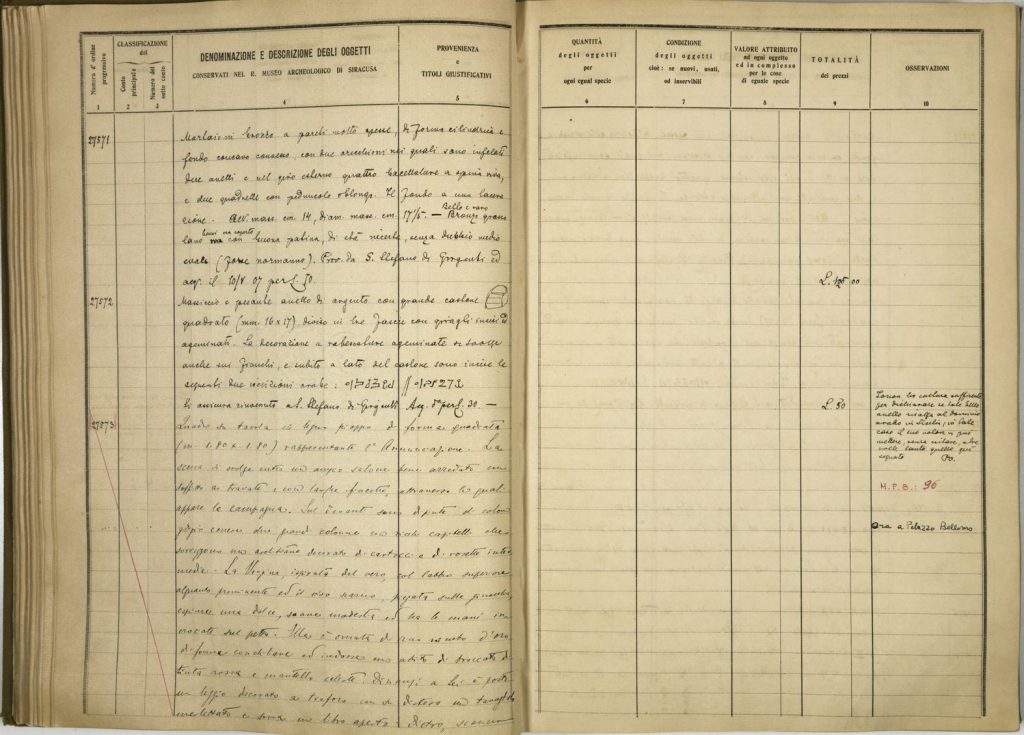 Numero d'ordine progressivo
CLASSIFICAZIONE del
Conto principale
Numero del sotto conto
DENOMINAZIONE E DESCRIZIONE DEGLI OGGETTI
CONSERVATI NEL R. MUSEO ARCHEOLOGICO DI SIRACUSA
PROVENIENZA
e
TITOLI GIUSTIFICATIVI
QUANTITÀ
degli oggetti
per
ogni egual specie
CONDIZIONE
degli oggetti
cioè: se nuovi, usati,
od inservibili
VALORE ATTRIBUITO
ad ogni oggetto
ed in complesso
per le cose
di eguale specie
TOTALITÀ
dei prezzi
OSSERVAZIONI
1 2 3 4 5 6 7 8 9 10
27571
bronzo a pareti molto spesse, di forma cilindrica e
fondo concavo convesso, con due orecchioni nei quali sono infilati
due anelli e nel giro esterno quattro baccellature a spina viva,
e due quadrelle con peduncolo oblongo. Il fondo a una lacera
zione. Alt. mass. cm. 14, diam. mass. cm. 17½. — Bello e raro Bronzo
con buona patina, di età incerta, senza dubbio medio
evale (forse normanno). Prov. da S. Stefano di Girgenti ed
acq. il 10/V 07 per L. 50.
L. 125.00
27572
Massiccio e pesante anello di argento con grande castone
quadrato (mm. 16 x 17), diviso in tre fasce con giragli incisi ed
ageminati. La decorazione a rabescature ageminate si svolge
anche sui fianchi, e subito a lato del castone sono incise le
seguenti due iscrizioni arabe:
Si assicura rinvenuto a S. Stefano di Girgenti. Acq. per L. 30. —
L. 50
27573
Quadro su tavola in legno pioppo di forma quadrata
(m. 1.80 x 1.80) rappresentante l'Annunciazione. La
scena si svolge entro un ampio salone bene arredato con
soffitto a travate e con larghe finestre, attraverso le quali
appare la campagna. Sul davanti sono dipinte di colore
grigio cenere due grandi colonne con ricchi capitelli che
sorreggono un architrave decorato di cartocci e di rosette inter
medie. La Vergine, ispirata dal vero, col labbro superiore
alquanto prominente ed il viso scarno, piegata sulle ginocchia,
esprime una dolce, soave modestia ed ha le mani in
crociate sul petto. Ella è ornata di un nimbo d'oro
di forma conchiliare ed indossa un abito di broccato di
tinta rossa e mantello celeste. Dinanzi a Lei è posto
un leggio decorato a traforo con su disteso un
merlettato e sopra un libro aperto. Dietro,
anello risalga al dominio
arabo in Sicilia; in tale
caso il suo valore si può
mettere, senza
volte tanto quello qui
segnato
M.P.B.: 96
Ora a Palazzo Bellomo